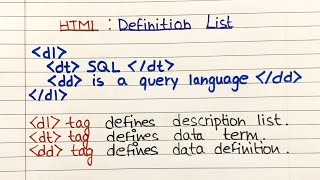 HTML : Definition List
<dl>
<dt> SQL </dt>
<dd> is a query language </dd>
</dl>
<dl> tag defines description list.
<dt> tag defines data term.
<dd> tag defines data definition.